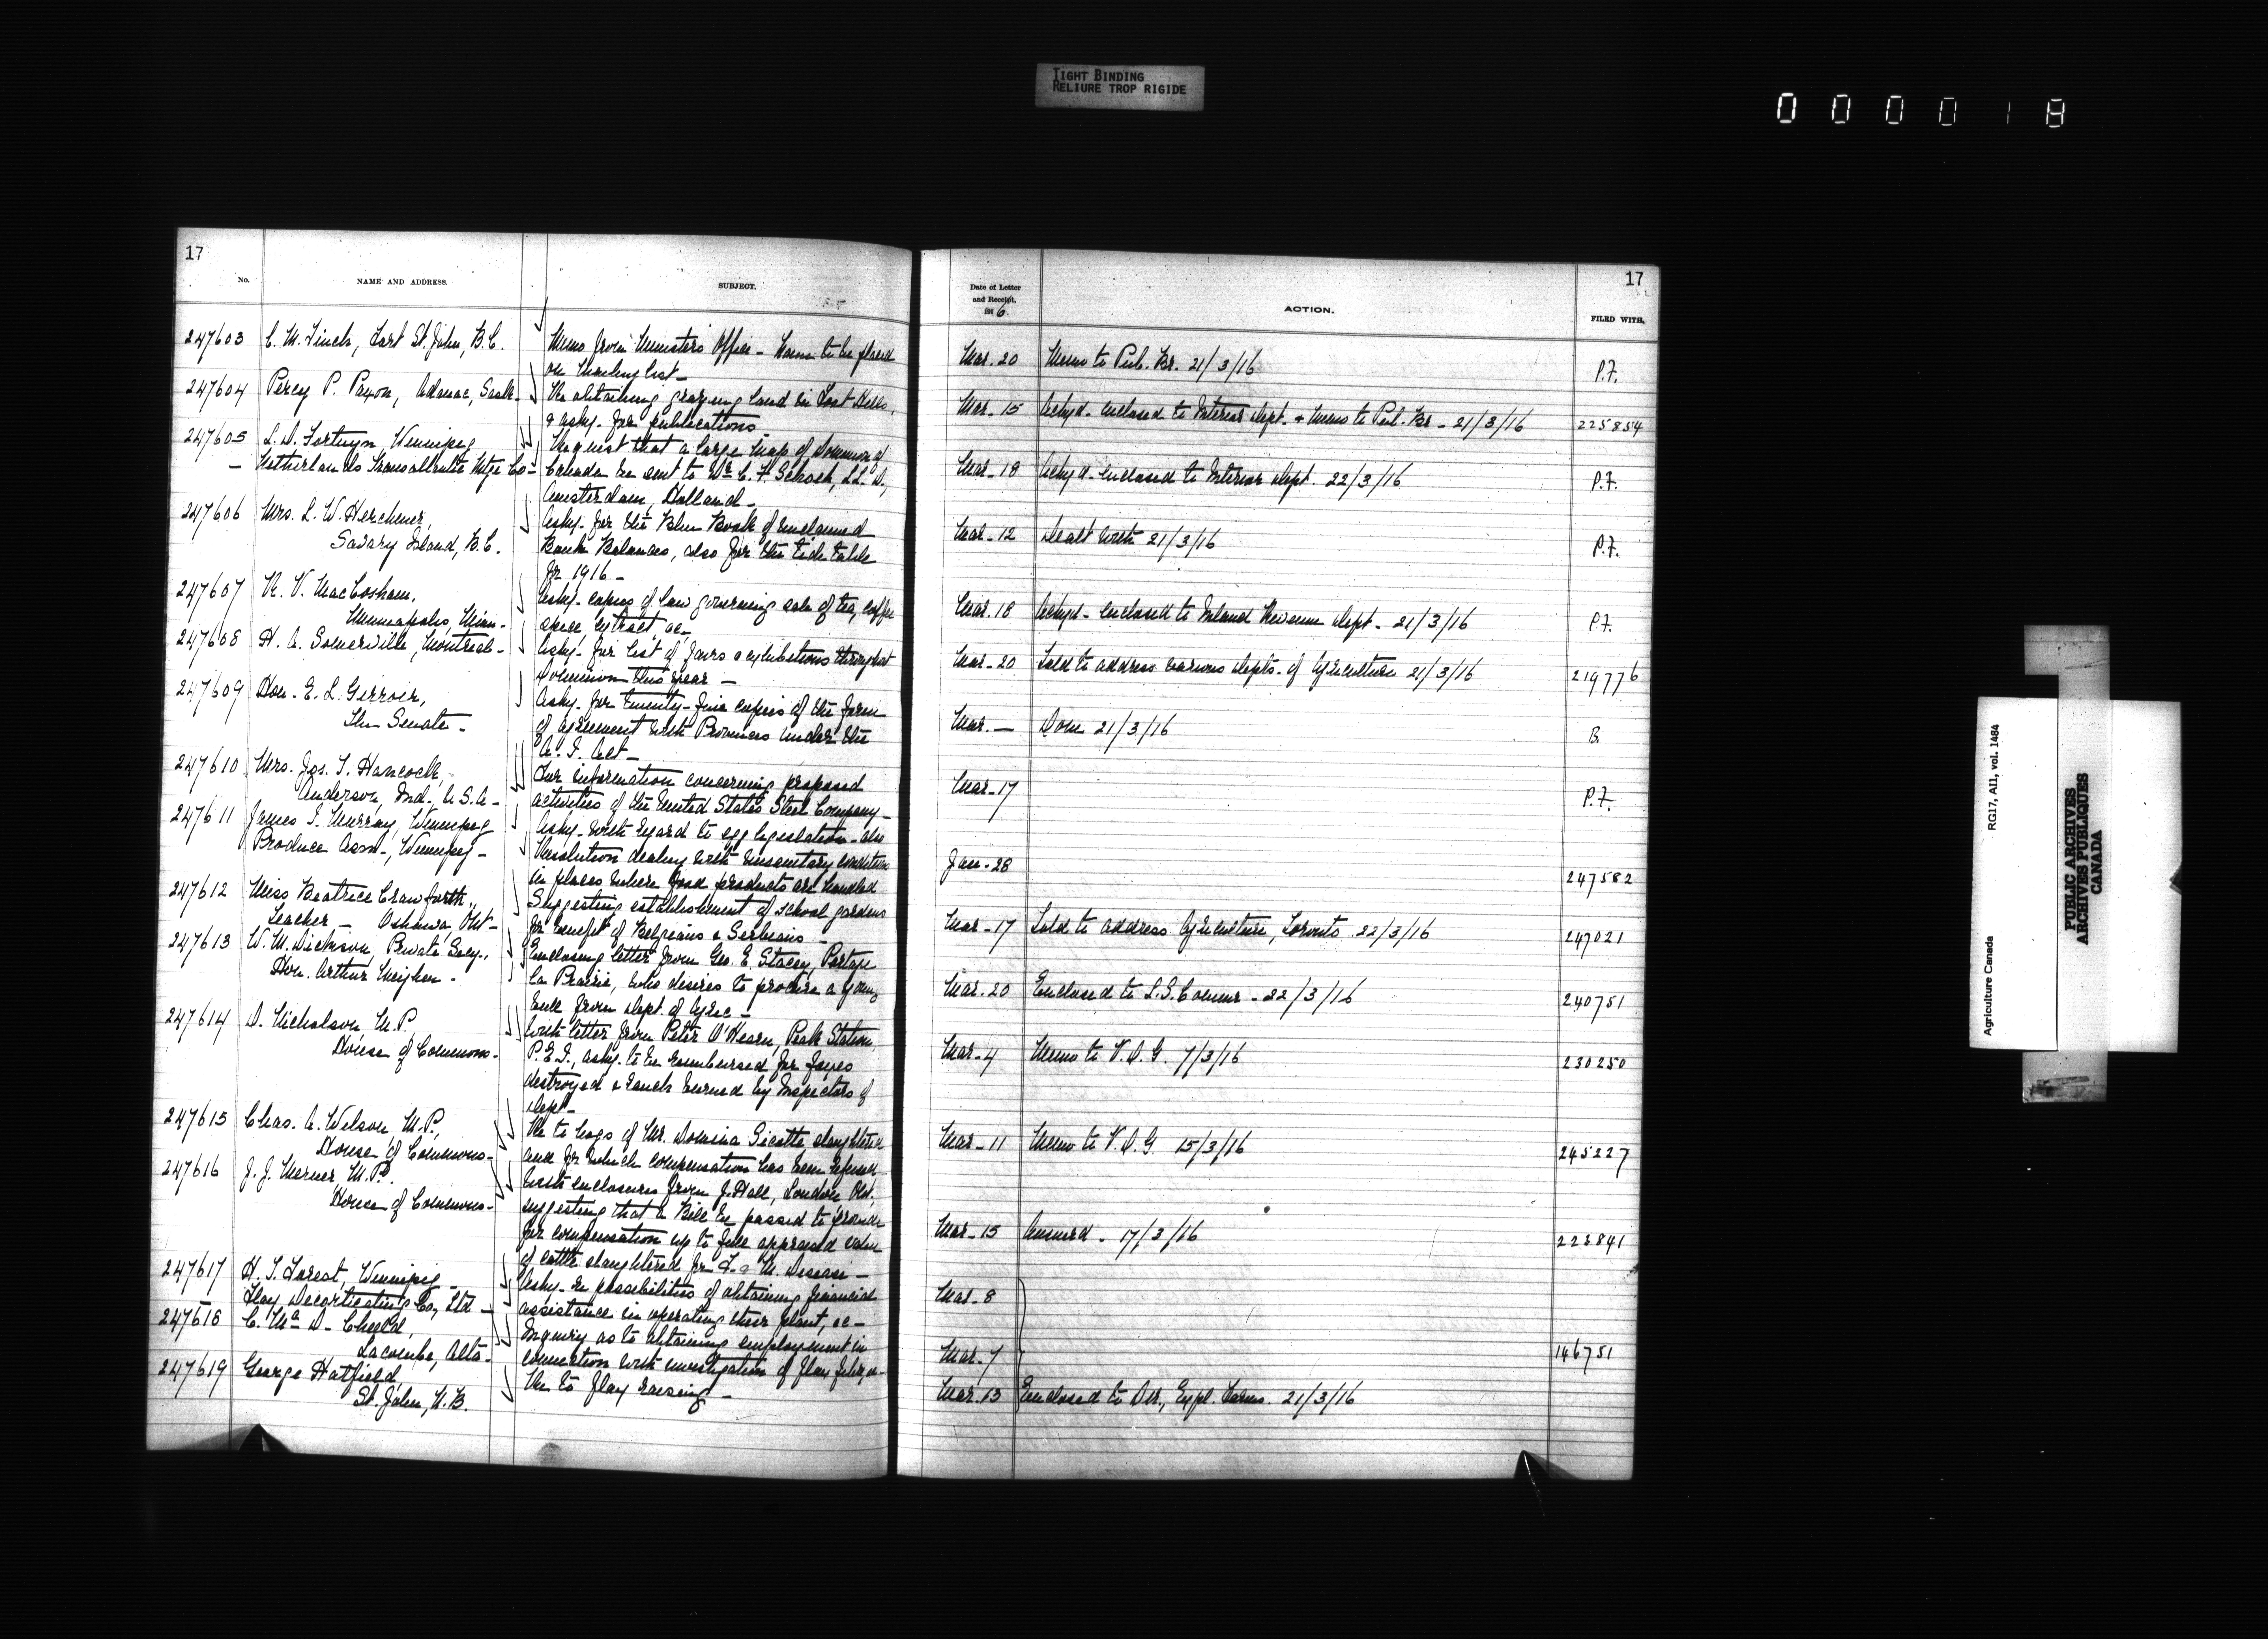 TIGHT BINDING
RELIURE TROP RIGIDE
000018
17
No.
NAME AND ADDRESS.
SUBJECT.
247603 C. M. Finch, Fort St. John, B.C.
Memo from Minister's Office - Name to be placed
on Mailing list -
247604 Percy P. Paxon, Adanac, Sask -
Re obtaining grazing land in Lost Hills,
& askg. for publications
247605 L. D. Fortuyn, Winnipeg
Request that a large map of Dominion of
- Netherlands Transatlantic Mtge Co -
Canada be sent to Wm. C. H. Schock, LL.D.,
Amsterdam, Holland -
247606 Mrs. L. W. Herchmer,
Askg. for the Blue Book of Unclaimed
Savary Island, B.C.
Bank Balances, also for the tide table
for 1916 -
247607 R. V. MacCosham,
Askg. copies of law governing sale of tea, coffee
Minneapolis, Minn -
spice, extract, &c -
247608 H. A. Somerville, Montreal -
Askg. for list of fairs & exhibitions throughout
Dominion this year -
247609 Hon. E. L. Girroir,
Askg. for twenty-five copies of the form
The Senate -
of agreement with Provinces under the
A. I. Act -
247610 Mrs. Jos. T. Hancock,
For information concerning proposed
Anderson, Ind., U.S.A -
activities of the United States Steel Company -
247611 James T. Murray, Winnipeg
Askg. with regard to egg legislation - also
Produce Assn., Winnipeg -
Resolution dealing with unsanitary condition
in places where food products are handled
247612 Miss Beatrice Crawforth,
Suggesting establishment of school gardens
Teacher - Oshawa, Ont -
for benefit of Belgians & Serbians -
247613 W. M. Dickson, Private Secy.,
Enclosing letter from Geo. E. Stacey, Portage
Hon. Arthur Meighen -
La Prairie, who desires to procure a young
bull from Dept. of Agric -
247614 D. Nicholson, M.P.,
With letter from Peter O'Hearn, Peak Station,
House of Commons -
P.E.I., askg. to be reimbursed for foxes
destroyed & ranch burned by Inspectors of
Dept -
247615 Chas. A. Wilson, M.P.,
Re to hogs of Mr. Domina Sicotte slaughtered
House of Commons -
and for which compensation has been refused
247616 J. J. Merner, M.P.
With enclosures from J. Hall, London, Ont.
House of Commons -
suggesting that a Bill be passed to provide
for compensation up to full appraised value
of cattle slaughtered for F. & M. Disease -
247617 H. T. Forest, Winnipeg -
Askg. re possibilities of obtaining financial
Flax Decorticating Co., Ltd -
assistance in operating their plant, &c -
247618 C. McD. Cheeld,
Inquiry as to obtaining employment in
Lacombe, Alta -
connection with investigation of flax fibre, &c
247619 George Hatfield,
Re to flax raising -
St. John, N.B.
17
Date of Letter
and Receipt,
1916
ACTION.
FILED WITH.
Mar. 20 Memo to Pub. Br. 21/3/16 P.F.
Mar. 15 Ackgd. Enclosed to Interior Dept. & Memo to Pub. Br - 21/3/16 225854
Mar - 18 Ackgd. Enclosed to Interior Dept. 22/3/16 P.F.
Mar - 12 Dealt with 21/3/16 P.F.
Mar. 18 Ackgd. Enclosed to Inland Revenue Dept - 21/3/16 P.F.
Mar - 20 Told to address various Depts. of Agriculture 21/3/16 219776
Mar. — Done 21/3/16 B.
Mar - 17 P.F.
Jan - 28 247582
Mar - 17 Told to address Agriculture, Toronto 22/3/16 247021
Mar. 20 Enclosed to L.S. Commr - 22/3/16 240751
Mar - 4 Memo to V.D.G. 7/3/16 230250
Mar - 11 Memo to V.D.G. 15/3/16 245227
Mar - 15 Answerd. 17/3/16 223841
Mar - 8
Mar. 7 146751
Mar. 13 Enclosed to Dir., Expl. Farms. 21/3/16
Agriculture Canada RG17, AI1, vol. 1484
PUBLIC ARCHIVES
ARCHIVES PUBLIQUES
CANADA